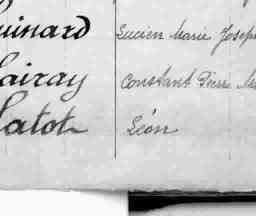 uinard Lucien Marie Joseph
airay Constant Pierre
Latot Léon